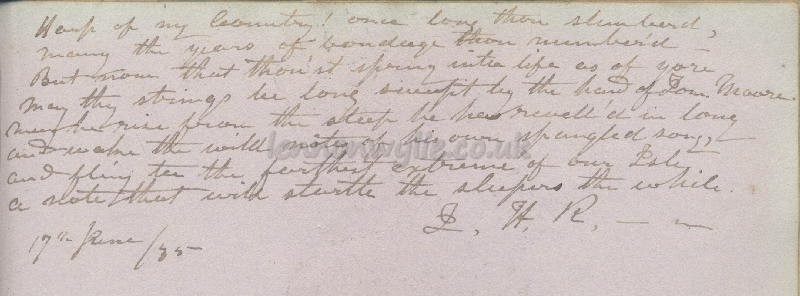 Harp of my Country! once long thou slumber'd,
many the years of bondage thou number'd –
But now that thou'st spring into life as of yore
May thy strings be long swept by the hand of Tom Moore.
may he rise from the sleep he has revell'd in long
and wake the wild notes of his own spangled song,
and fling to the furthest extreme of our Isle
a note that will startle the sleepers the while.
J. H. R. – –
17th June /35–
lennonwylie.co.uk